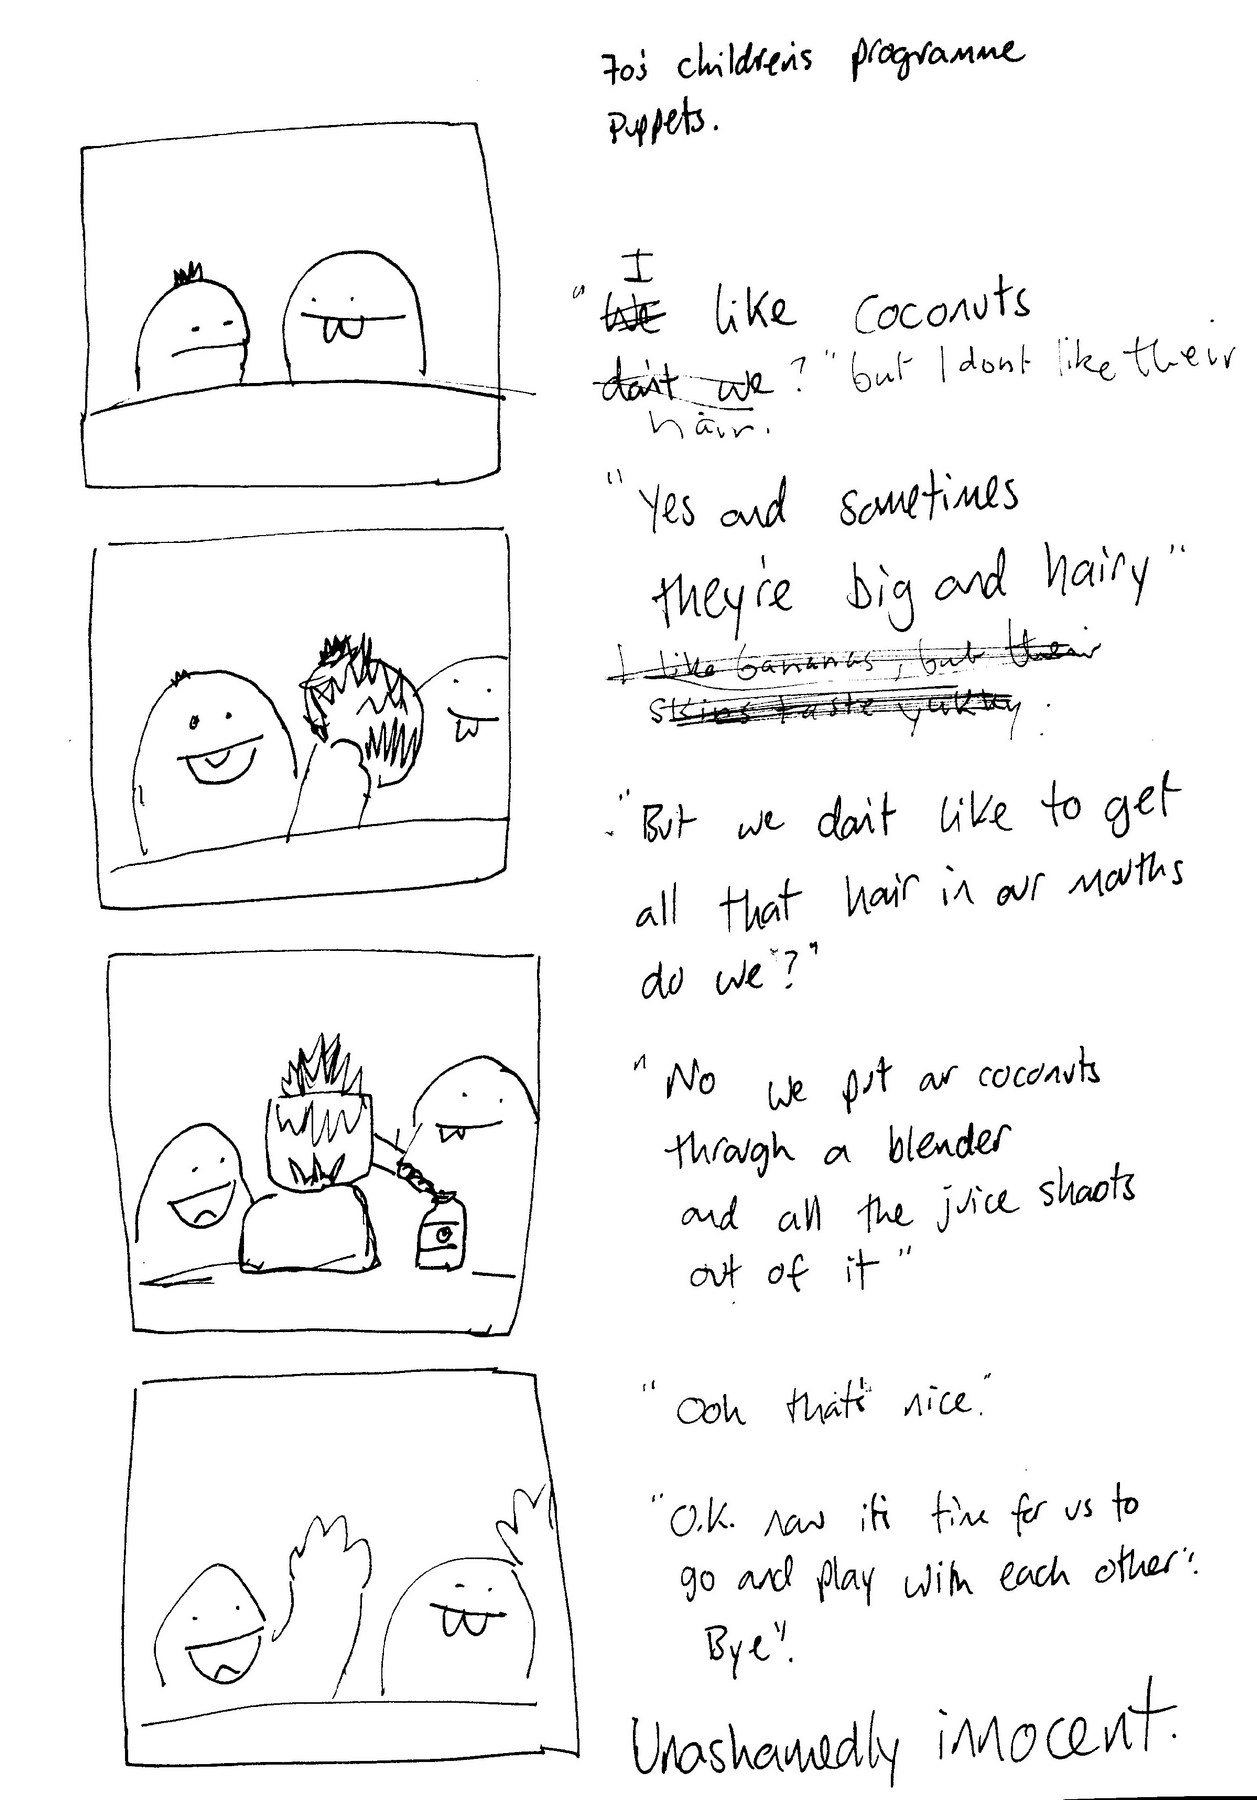 70's children's programme
Puppets.
I
"We like coconuts
don't we?" but I dont like their
hair.
"Yes and sometimes
they're big and hairy"
I like bananas, but their
skins taste yukky.
"But we don't like to get
all that hair in our mouths
do we?"
"No we put our coconuts
through a blender
and all the juice shoots
out of it"
"Ooh that's nice."
"O.K. now it's time for us to
go and play with each other".
Bye".
Unashamedly innocent.